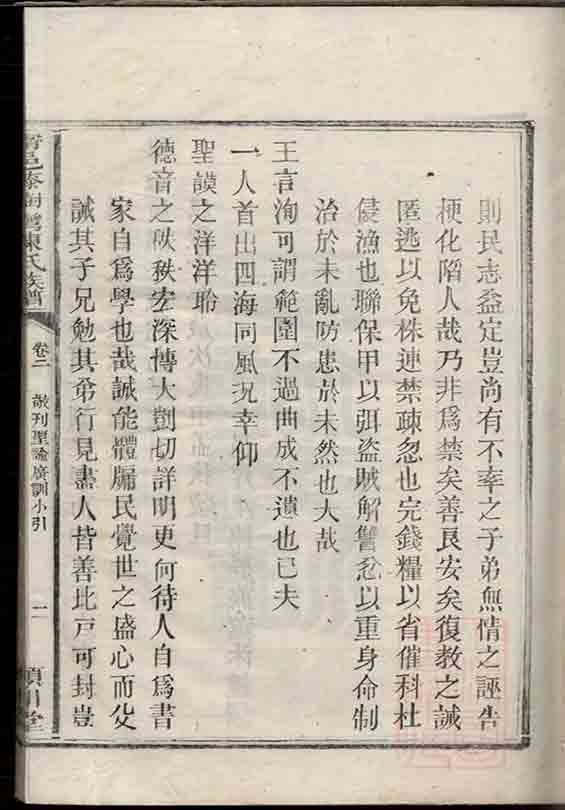 則民志益定豈尚有不率之子弟無情之誣吿
梗化陷人哉乃非爲禁矣善良安矣復教之誡
匿逃以免株連禁疎忽也完錢糧以省催科杜
侵漁也聯保甲以弭盜賊解讐忿以重身命制
治於未亂防患於未然也大哉
王言洵可謂範圍不過曲成不遺也已夫
一人首出四海同風况幸仰
聖謨之洋洋聆
德音之秩秩宏深博大剴切詳明更何待人自爲書
家自爲學也哉誠能體牖民覺世之盛心而父
誡其子兄勉其弟行見盡人皆善比戸可封豈
陳氏族譜
卷二
敬刊聖諭廣訓小引
二
潁川堂